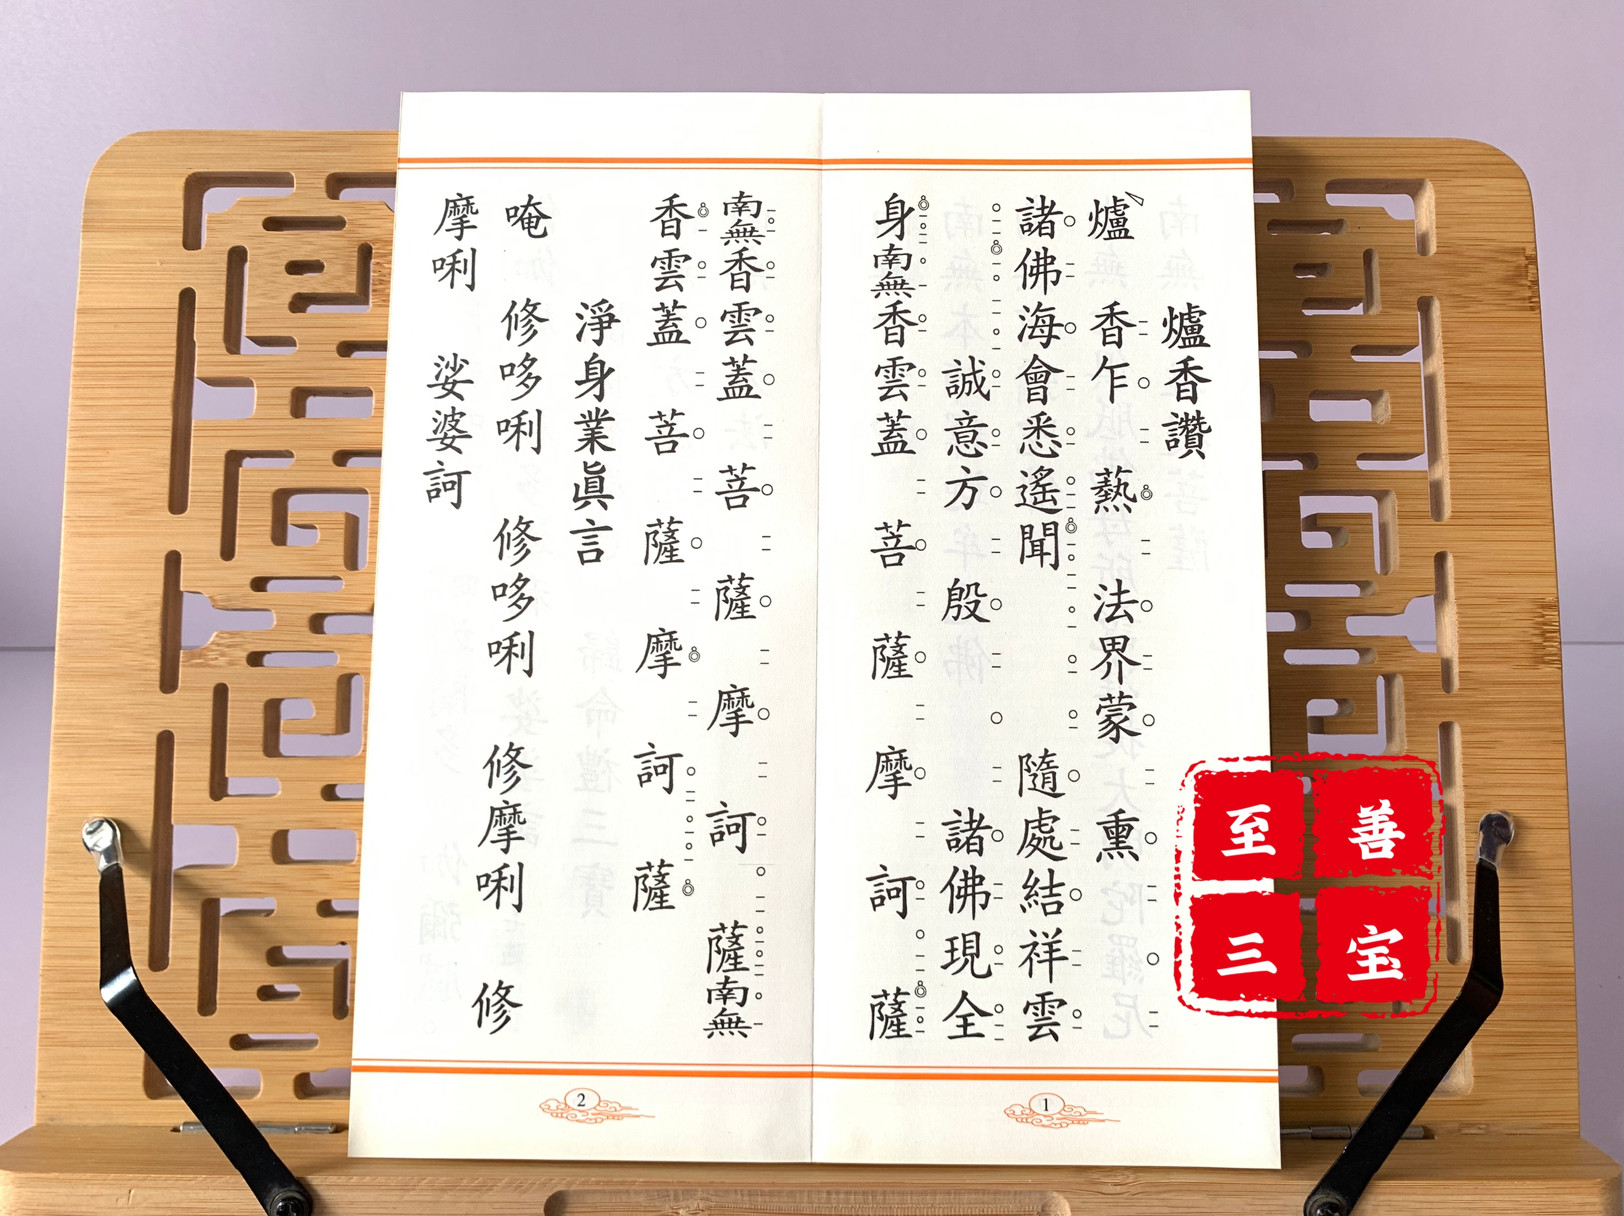 爐香讚
爐香乍熱法界蒙熏
諸佛海會悉遙聞隨處結祥雲
誠意方殷諸佛現全
身南無香雲蓋菩薩摩訶薩
1
南無香雲蓋菩薩摩訶薩南無
香雲蓋菩薩摩訶薩
淨身業眞言
唵修哆唎修哆唎修摩唎修
摩唎娑婆訶
2
至善
三宝